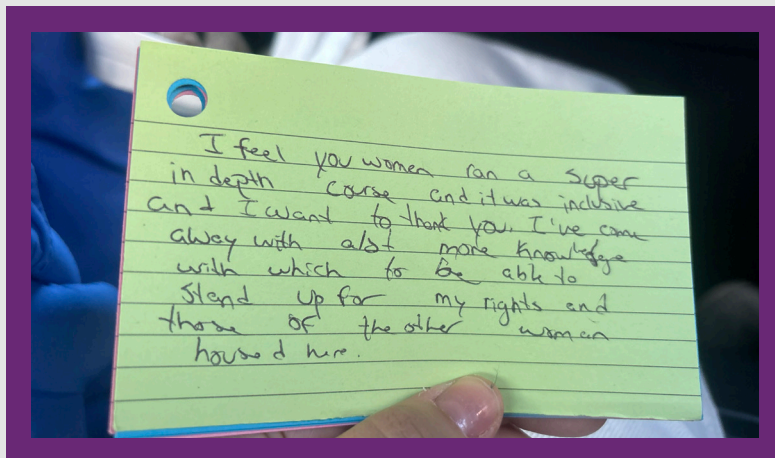 I feel you women ran a super
in depth course and it was inclusive
and I want to thank you. I've come
away with alot more knowledge
with which to be able to
stand up for my rights and
those of the other woman
housed here.